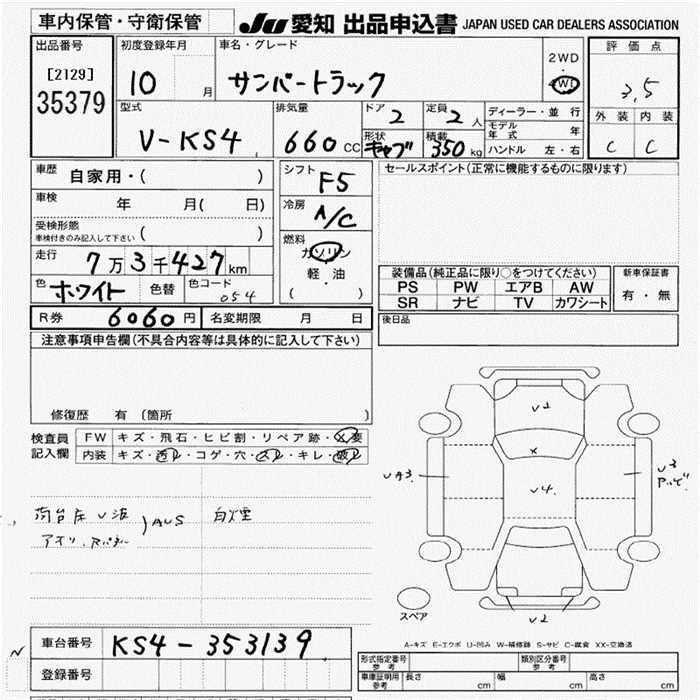 車内保管・守衛保管
JU 愛知 出品申込書 JAPAN USED CAR DEALERS ASSOCIATION
出品番号
[2129]
35379
初度登録年月
10 月
車名・グレード
サンバートラック
2WD
・
4WD
評価点
3.5
外装 内装
C C
型式
V-KS4
排気量
660 CC
ドア
2
定員
2 人
形状
キャブ
積載
350 kg
ディーラー・並行
モデル年式 年
ハンドル 左・右
車歴
自家用・( )
車検 年 月( 日)
受検形態
車検付きのみ記入して下さい ( )
走行
7万3千427km
色
ホワイト
色替
色コード
054
シフト
F5
冷房
A/C
燃料
ガソリン
軽・油
( )
セールスポイント(正常に機能するものに限ります)
装備品(純正品に限り○をつけてください)
PS PW エアB AW
SR ナビ TV カワシート
新車保証書
有・無
後日品
R券 6060円
名変期限 月 日
注意事項申告欄(不具合内容等は具体的に記入して下さい)
修復歴 有(箇所 )
検査員記入欄
FW キズ・飛石・ヒビ割・リペア跡・X要
内装 キズ・汚レ・コゲ・穴・スレ・キレ・破レ
荷台床 U 波
アオリ・
AUS
白煙
U2
X
U4
UA3
U3
U2
スペア
A-キズ E-エクボ U-凹み W-補修跡 S-サビ C-腐食 XX-交換済
車台番号
KS4-353139
登録番号
形式指定番号
参考
類別区分番号
参考
車庫証明用
参考
長さ cm
幅 cm
高さ cm